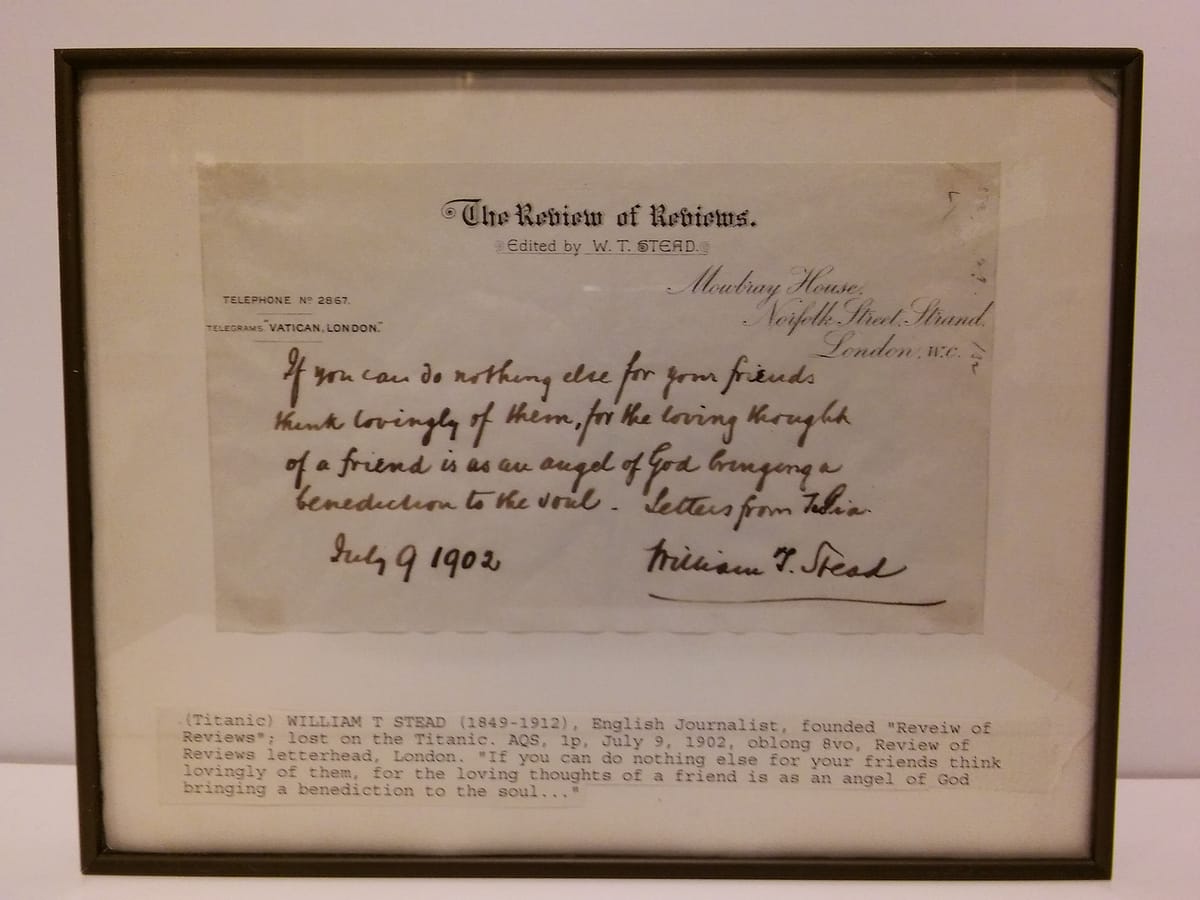 The Review of Reviews.
Edited by W. T. STEAD.
Mowbray House,
Norfolk Street, Strand,
London, W.C.
TELEPHONE Nº 2867.
TELEGRAMS "VATICAN, LONDON."
If you can do nothing else for your friends
think lovingly of them, for the loving thought
of a friend is as an angel of God bringing a
benediction to the soul. Letters from Julia.
July 9 1902
William T. Stead
(Titanic) WILLIAM T STEAD (1849-1912), English Journalist, founded "Reveiw of
Reviews"; lost on the Titanic. AQS, 1p, July 9, 1902, oblong 8vo, Review of
Reviews letterhead, London. "If you can do nothing else for your friends think
lovingly of them, for the loving thoughts of a friend is as an angel of God
bringing a benediction to the soul..."